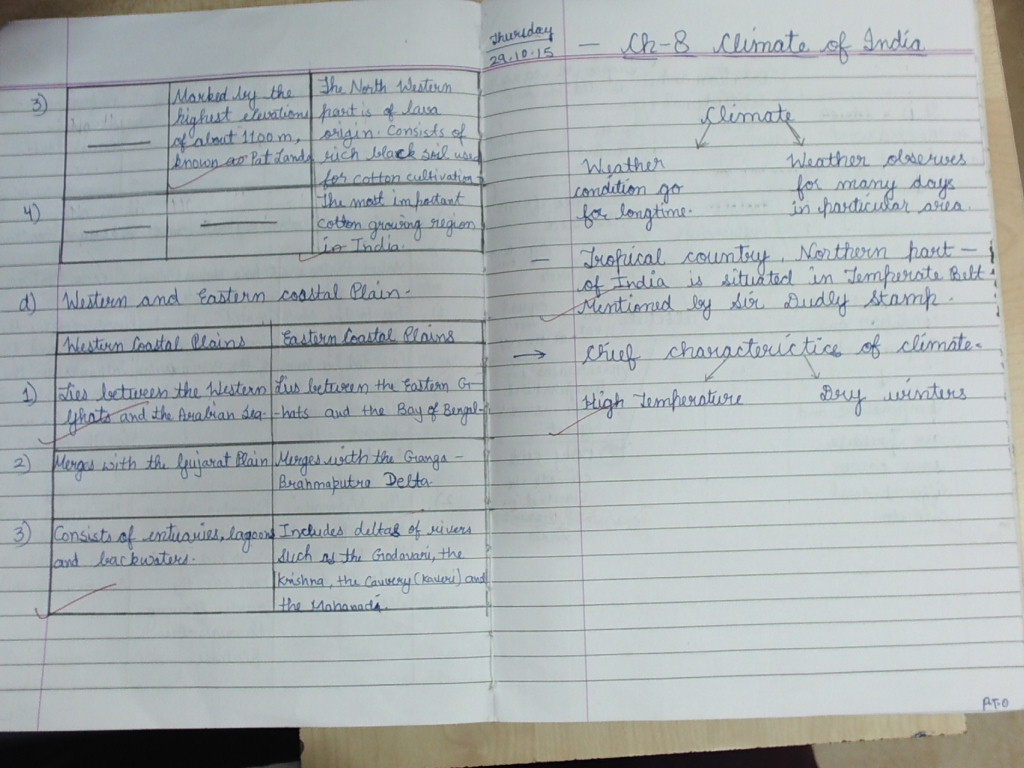 3)
Marked by the
highest elevations
of about 1100 m,
known as Pat Lands
The North Western
part is of lava
origin. Consists of
rich black soil used
for cotton cultivation
4)
The most important
cotton growing region
in India.
d) Western and Eastern coastal Plain.
Western Coastal Plains
Eastern Coastal Plains
1)
Lies between the Western
Ghats and the Arabian Sea.
Lies between the Eastern G-
-hats and the Bay of Bengal-
2)
Merges with the Gujarat Plain
Merges with the Ganga -
Brahmaputra Delta.
3)
Consists of entuaries, lagoons
and backwaters.
Includes deltas of rivers
such as the Godavari, the
Krishna, the Cauvery (Kaveri) and
the Mahanadi.
Thursday
29.10.15
- Ch-8 Climate of India
Climate
Weather
condition go
for longtime.
Weather observes
for many days
in particular area.
- Tropical country, Northern part -
of India is situated in Temperate Belt.
Mentioned by Sir Dudly Stamp.
→ Chief characterictics of climate.
High Temperature
Dry winters
P.T.O